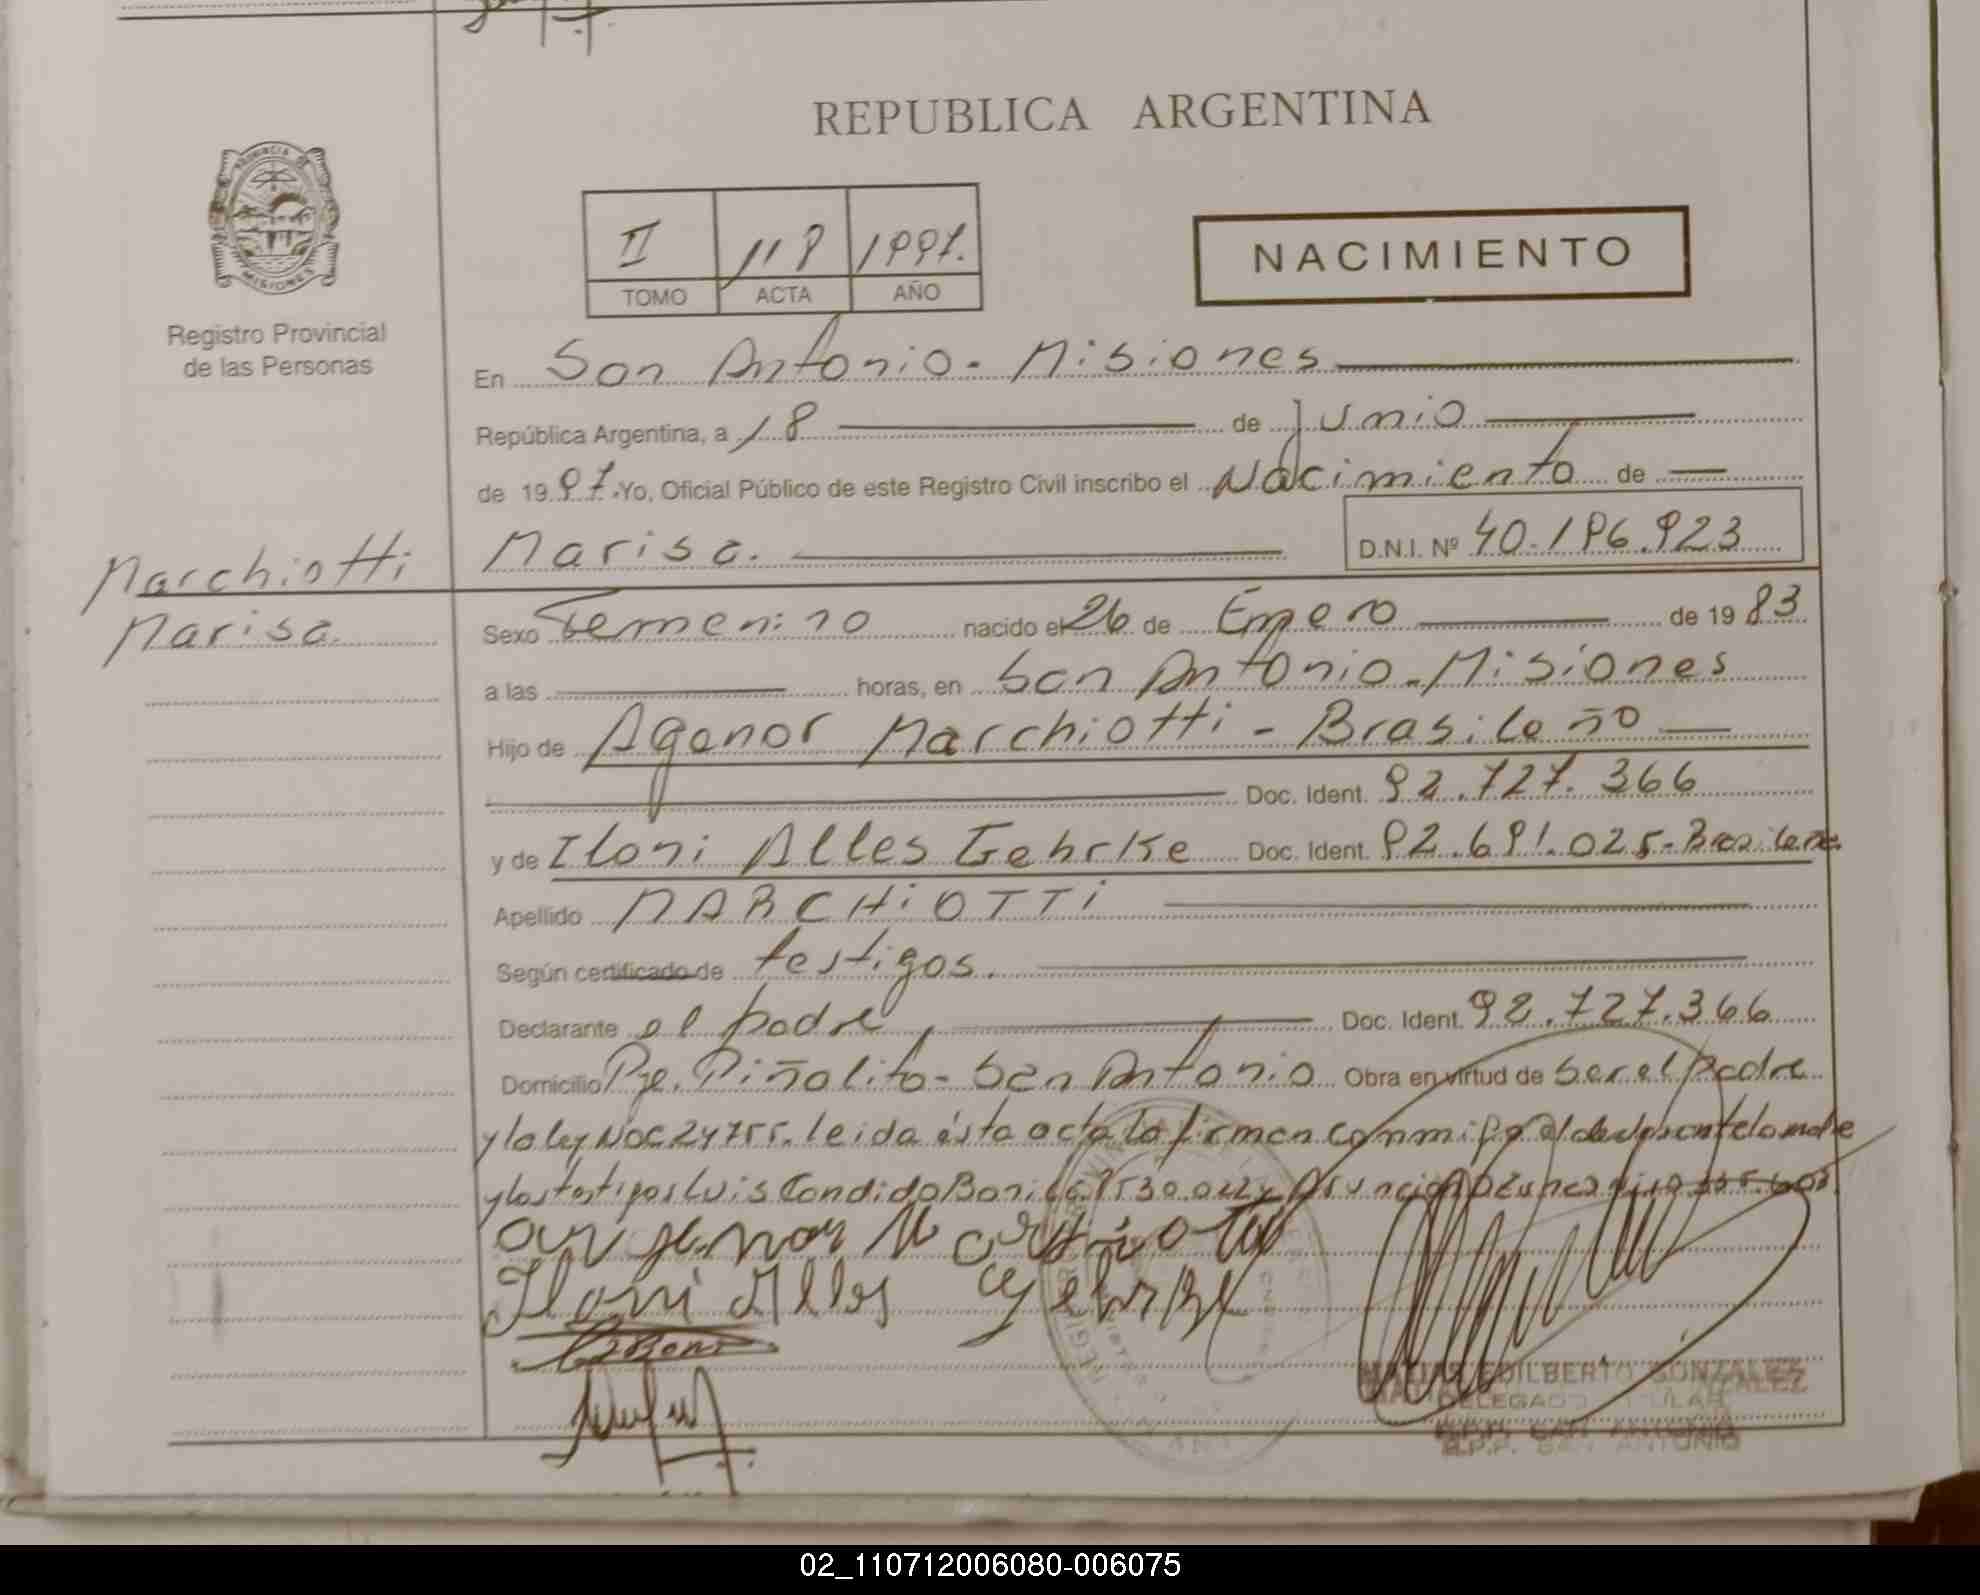 REPUBLICA ARGENTINA
PROVINCIA DE MISIONES
Registro Provincial
de las Personas
II 118 1997.
TOMO ACTA AÑO
NACIMIENTO
En San Antonio - Misiones
República Argentina, a 18 de Junio
de 1997. Yo, Oficial Público de este Registro Civil inscribo el Nacimiento de
Marchiotti
Marisa.
Marisa. D.N.I. Nº 40.196.923
Sexo Femenino nacido el 26 de Enero de 1983
a las horas, en San Antonio - Misiones
Hijo de Agenor Marchiotti - Brasileño
Doc. Ident. 92.727.366
y de Iloni Alles Gehrke Doc. Ident. 92.691.025 - Brasileña
Apellido MARCHIOTTI
Según certificado de testigos.
Declarante el padre, Doc. Ident. 92.727.366
Domicilio Pje. Piñalito - San Antonio Obra en virtud de ser el padre
y la ley Nac 24755. leida ésta acta la firman conmigo el declarante la madre
y los testigos Luis Candido Boni
Iloni Alles Gehrke
MATIAS EDILBERTO GONZALEZ
DELEGADO TITULAR
R.P.P. SAN ANTONIO
02_110712006080-006075